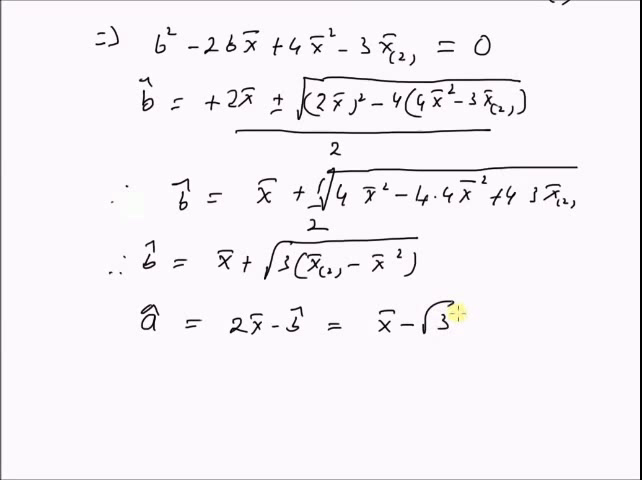 ⇒ b² - 2b x̄ + 4x̄² - 3x̄₍₂₎ = 0
b̂ = +2x̄ ± √((2x̄)² - 4(4x̄² - 3x̄₍₂₎)) / 2
∴ b̂ = x̄ + (1/2)√(4x̄² - 4·4x̄² + 4 3x̄₍₂₎
∴ b̂ = x̄ + √(3(x̄₍₂₎ - x̄²))
â = 2x̄ - b̂ = x̄ - √3